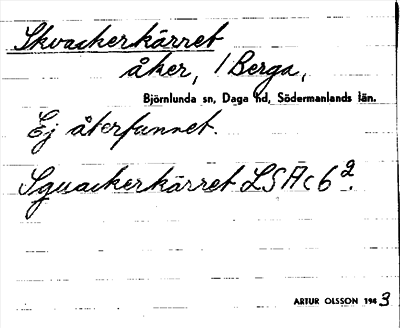 Skvackerkärret
åker, / Berga,
Björnlunda sn, Daga hd, Södermanlands län.
Ej återfunnet.
Sguackerkärret LSA c 6².
ARTUR OLSSON 1943